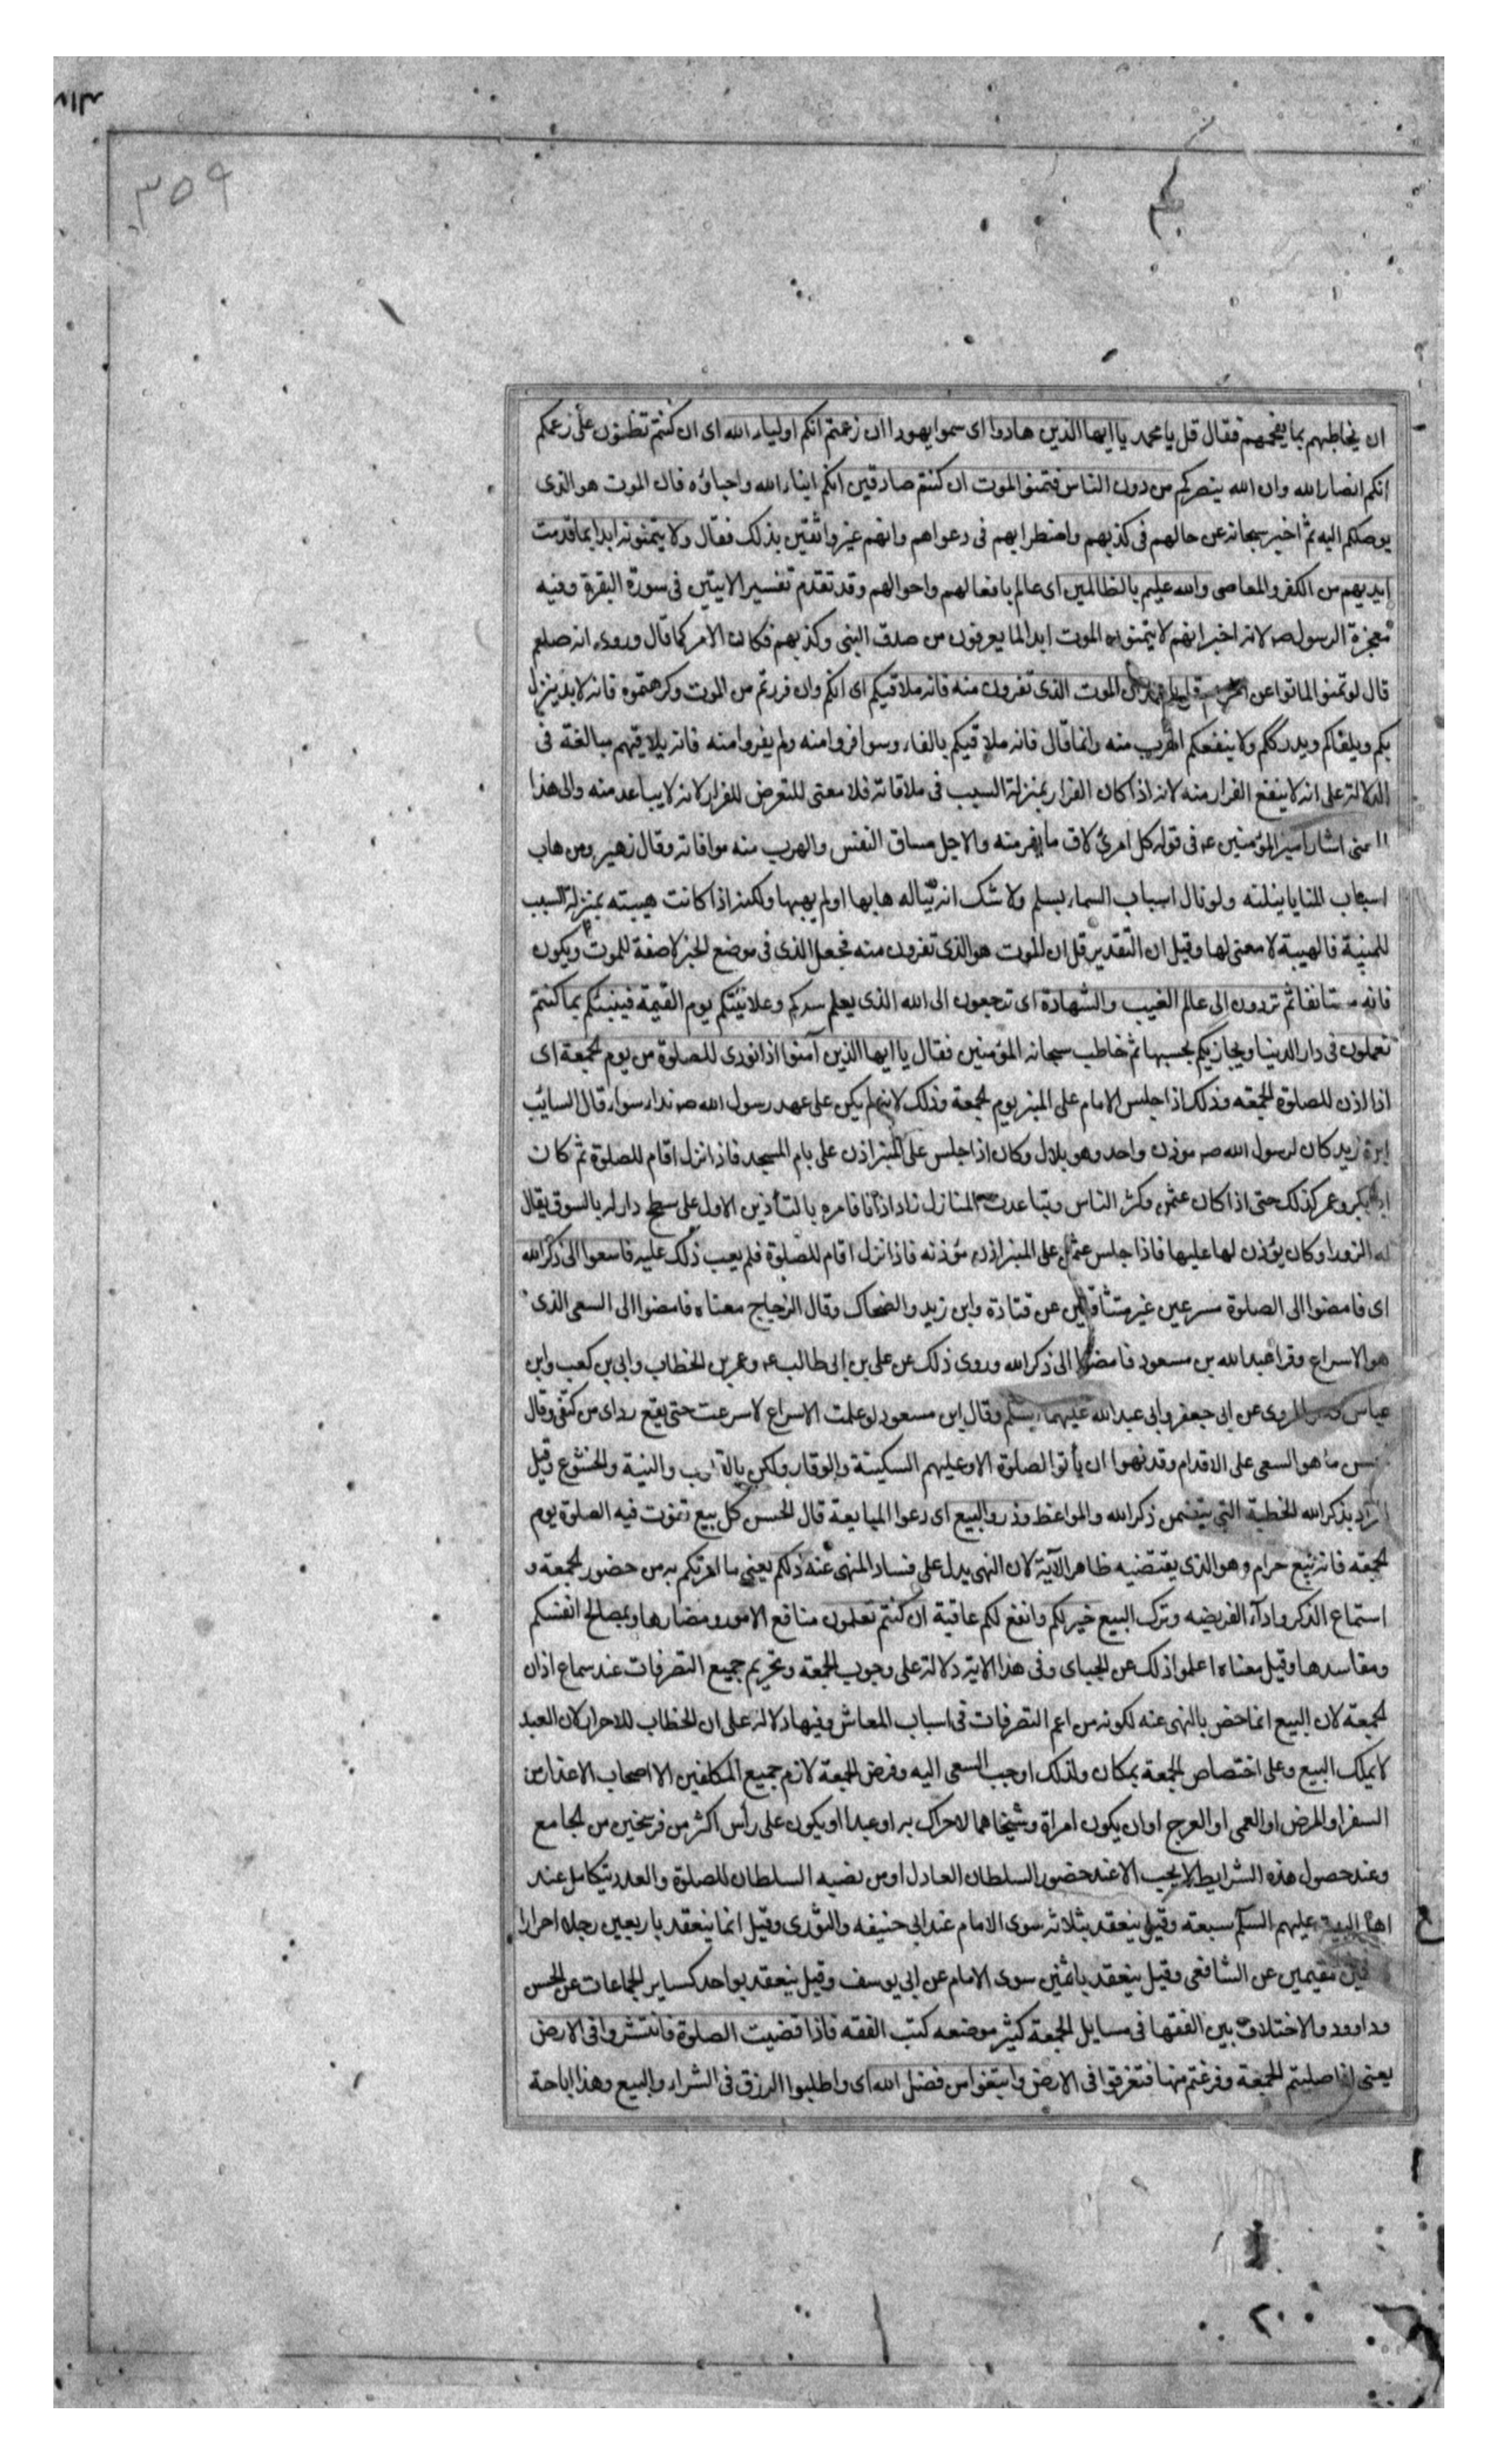 ٣٥٩
ان يخاطبهم بما يفحمهم فقال قل يا محمد يا ايها الذين هادوا اى سموا يهودا ان زعمتم انكم اولياء الله اى ان كنتم تظنون على زعمكم
انكم انصار الله وان الله ينصركم من دون الناس فتمنوا الموت ان كنتم صادقين انكم ابناء الله واحباؤه فان الموت هو الذى
يوصلكم اليه ثم اخبر سبحانه عن حالهم فى كذبهم واضطرابهم فى دعواهم وانهم غير واثقين بذلك فقال ولا يتمنونه ابدا بما قدمت
ايديهم من الكفر والمعاصى والله عليم بالظالمين اى عالم بافعالهم واحوالهم وقد تقدم تفسير الايتين فى سورة البقرة وفيه
معجزة الرسول صه لانه اخبر انهم لا يتمنون الموت ابدا لما يعرفون من صدق النبى وكذبهم فكان الامر كما قال وروى انه صلعم
قال لو تمنوا لماتوا عن الموت الذى تفرون منه فانه ملاقيكم اى انكم وان فررتم من الموت وكرهتموه فانه لابد ينزل
بكم ويلقاكم ويدرككم ولا ينفعكم الهرب منه وانما قال فانه ملاقيكم بالفاء وسوا فروا منه ولم يفروا منه فانه يلاقيهم مبالغة فى
الدلالة على انه لا ينفع الفرار منه لانه اذا كان الفرار بمنزلة السبب فى ملاقاته فلا معنى للتعرض للفرار لانه لا يباعد منه والى هذا
اشار امير المؤمنين عه فى قوله كل امرئ لاق ما يفر منه والاجل مساق النفس والهرب منه موافاته وقال زهير ومن هاب
اسباب المنايا ينلنه ولو نال اسباب السماء بسلم ولا شك انه تناله هابها او لم يهبها ولكنه اذا كانت هيبته بمنزلة السبب
للمنية فالهيبة لا معنى لها وقيل ان التقدير قل ان الموت هو الذى تفرون منه فجعل الذى فى موضع الخبر لا صفة للموت ويكون
فانه مستانفا ثم تردون الى عالم الغيب والشهادة اى ترجعون الى الله الذى يعلم سركم وعلانيتكم يوم القيمة فينبئكم بما كنتم
تعملون فى دار الدنيا ويجازيكم بحسبها ثم خاطب سبحانه المؤمنين فقال يا ايها الذين آمنوا اذا نودى للصلوة من يوم الجمعة اى
اذا اذن للصلوة الجمعة وذلك اذا جلس الامام على المنبر يوم الجمعة وذلك لانه لم يكن على عهد رسول الله صه نداء سواه قال السائب
ابن زيد كان لرسول الله صه موذن واحد وهو بلال وكان اذا جلس على المنبر اذن على باب المسجد فاذا نزل اقام للصلوة ثم كان
ابو بكر وعمر كذلك حتى اذا كان عثمن وكثر الناس وتباعدت المنازل زاد اذانا فامره بالتأذين الاول على سطح دار له بالسوق يقال
له الزورا وكان يؤذن لها عليها فاذا جلس عثمن على المنبر اذن مؤذنه فاذا نزل اقام للصلوة فلم يعب ذلك عليه فاسعوا الى ذكر الله
اى فامضوا الى الصلوة مسرعين غير متثاقلين عن قتادة وابن زيد والضحاك وقال الزجاج معناه فامضوا الى السعى الذى
هو الاسراع وقرا عبد الله بن مسعود فامضوا الى ذكر الله وروى ذلك عن على بن ابى طالب عه وعمر بن الخطاب وابى بن كعب وابن
عباس وهو المروى عن ابى جعفر وابى عبد الله عليهما وقال ابن مسعود لو علمت الاسراع لاسرعت حتى يقع رداى من كتفى وقال
ما هو السعى على الاقدام وقد نهوا ان يأتوا الصلوة الا وعليهم السكينة والوقار ولكن بالقلوب والنية والخشوع وقيل
اراد بذكر الله الخطبة التى يتضمن ذكر الله والمواعظ وذروا البيع اى دعوا المبايعة قال الحسن كل بيع تفوت فيه الصلوة يوم
الجمعة فانه بيع حرام وهو الذى يقتضيه ظاهر الآية لان النهى يدل على فساد المنهى عنه ذلكم يعنى ما امرتكم به من حضور الجمعة و
استماع الذكر وادآء الفريضه وترك البيع خير لكم وانفع لكم عاقبة ان كنتم تعلمون منافع الامور ومضارها ومصالح انفسكم
ومفاسدها وقيل معناه اعلموا ذلك عن الجباى وفى هذا الاية دلالة على وجوب الجمعة وتحريم جميع التصرفات عند سماع اذان
الجمعة لان البيع انما خص بالنهى عنه لكونه من اعم التصرفات فى اسباب المعاش وفيها دلالة على ان الخطاب للاحرار لان العبد
لا يملك البيع وعلى اختصاص الجمعة بمكان ولذلك اوجب السعى اليه وفرض الجمعة لازم جميع المكلفين الا اصحاب الاعذار من
السفر او المرض او العمى او العرج او ان يكون امراة وشيخا هما لا حراك به او عبدا او يكون على رأس اكثر من فرسخين من الجامع
وعند حصول هذه الشرايط لا يجب الا عند حضور السلطان العادل او من نصبه السلطان للصلوة والعدد يتكامل عند
اهل البيت عليهم السلم سبعة وقيل ينعقد بثلاثه سوى الامام عند ابى حنيفه والثورى وقيل انما ينعقد باربعين رجلا احرارا
مقيمين عن الشافعى وقيل ينعقد باثنين سوى الامام عن ابى يوسف وقيل ينعقد بواحد كساير الجماعات عن الحسن
وداوود والاختلاف بين الفقها فى مسايل الجمعة كثير موضعه كتب الفقه فاذا قضيت الصلوة فانتشروا فى الارض
يعنى اذا صليتم الجمعة وفرغتم منها فتفرقوا فى الارض وابتغوا من فضل الله اى واطلبوا الرزق فى الشراء والبيع وهذا اباحة